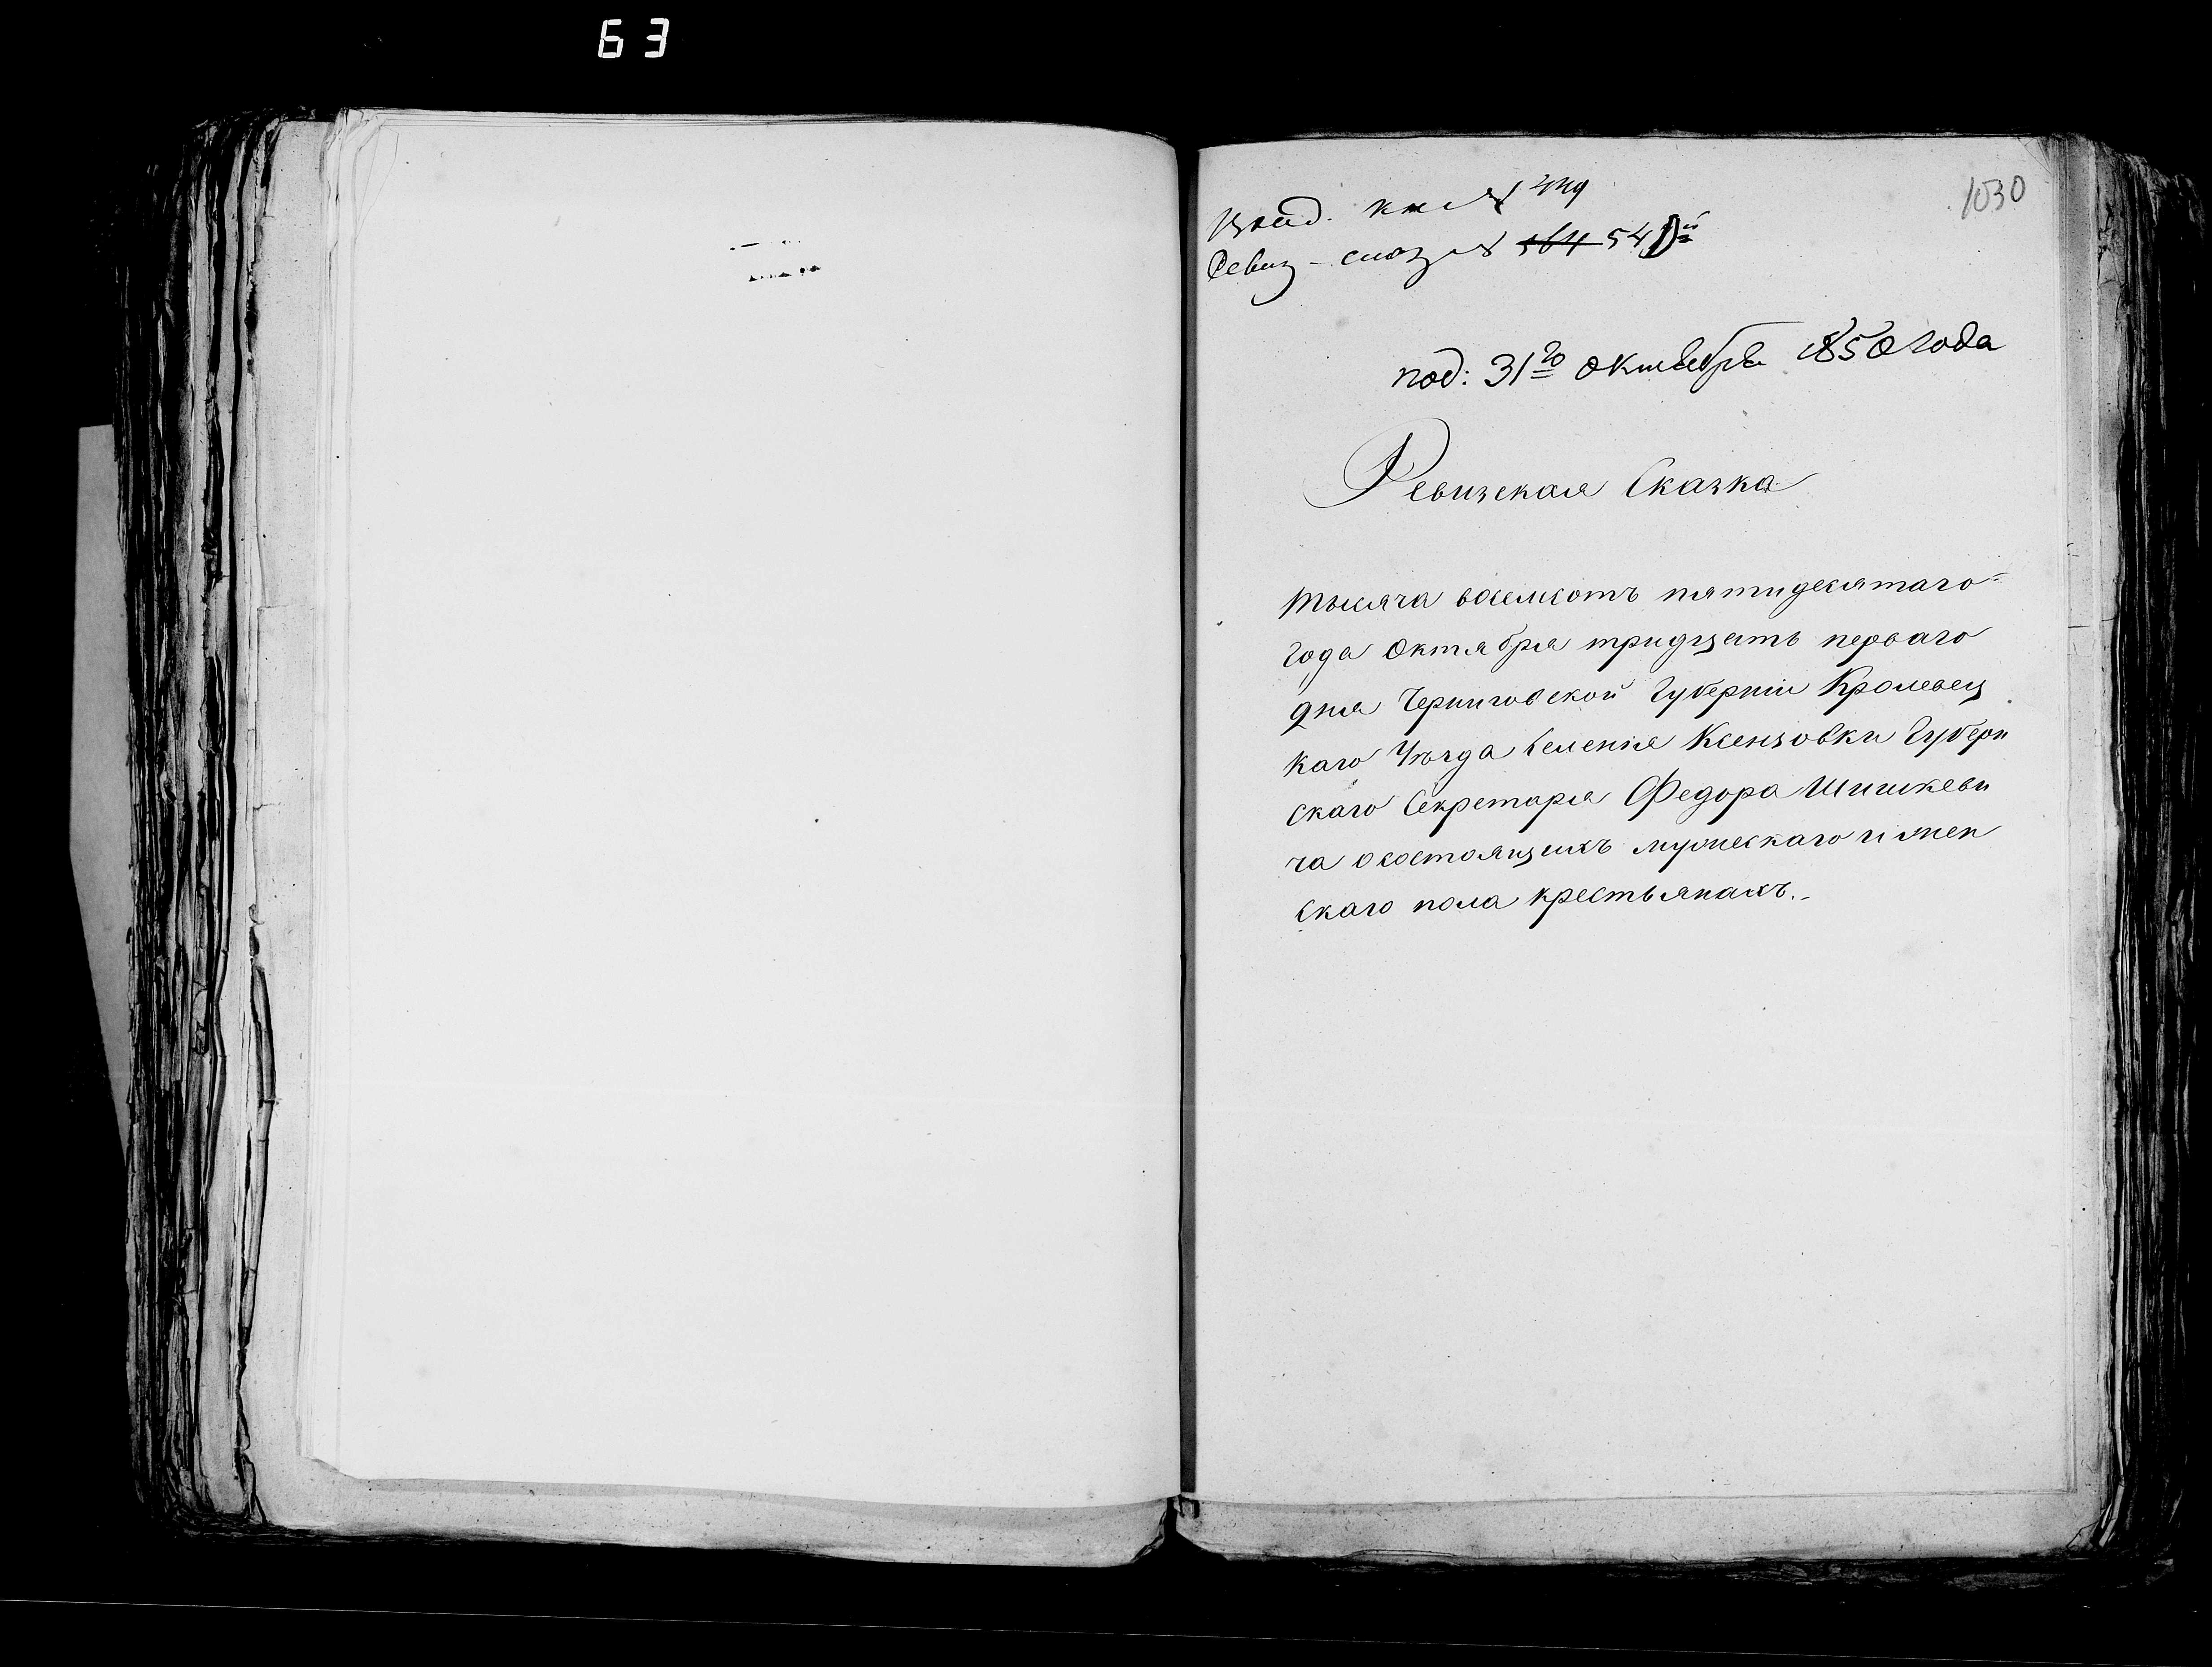 63
1030
Ревиз - сказ № 564 54
под: 31го Октября 1850 года
Ревизская Сказка
Тысяча восемсотъ пятидесятаго
года Октября тридцать перваго
дня Черниговской Губерніи Кролевец
каго Уѣзда селенія Ксензовки Губерн
скаго Секретаря Федора Шишкеви
ча о состоящихъ мужескаго и жен
скаго пола крестьянахъ.-